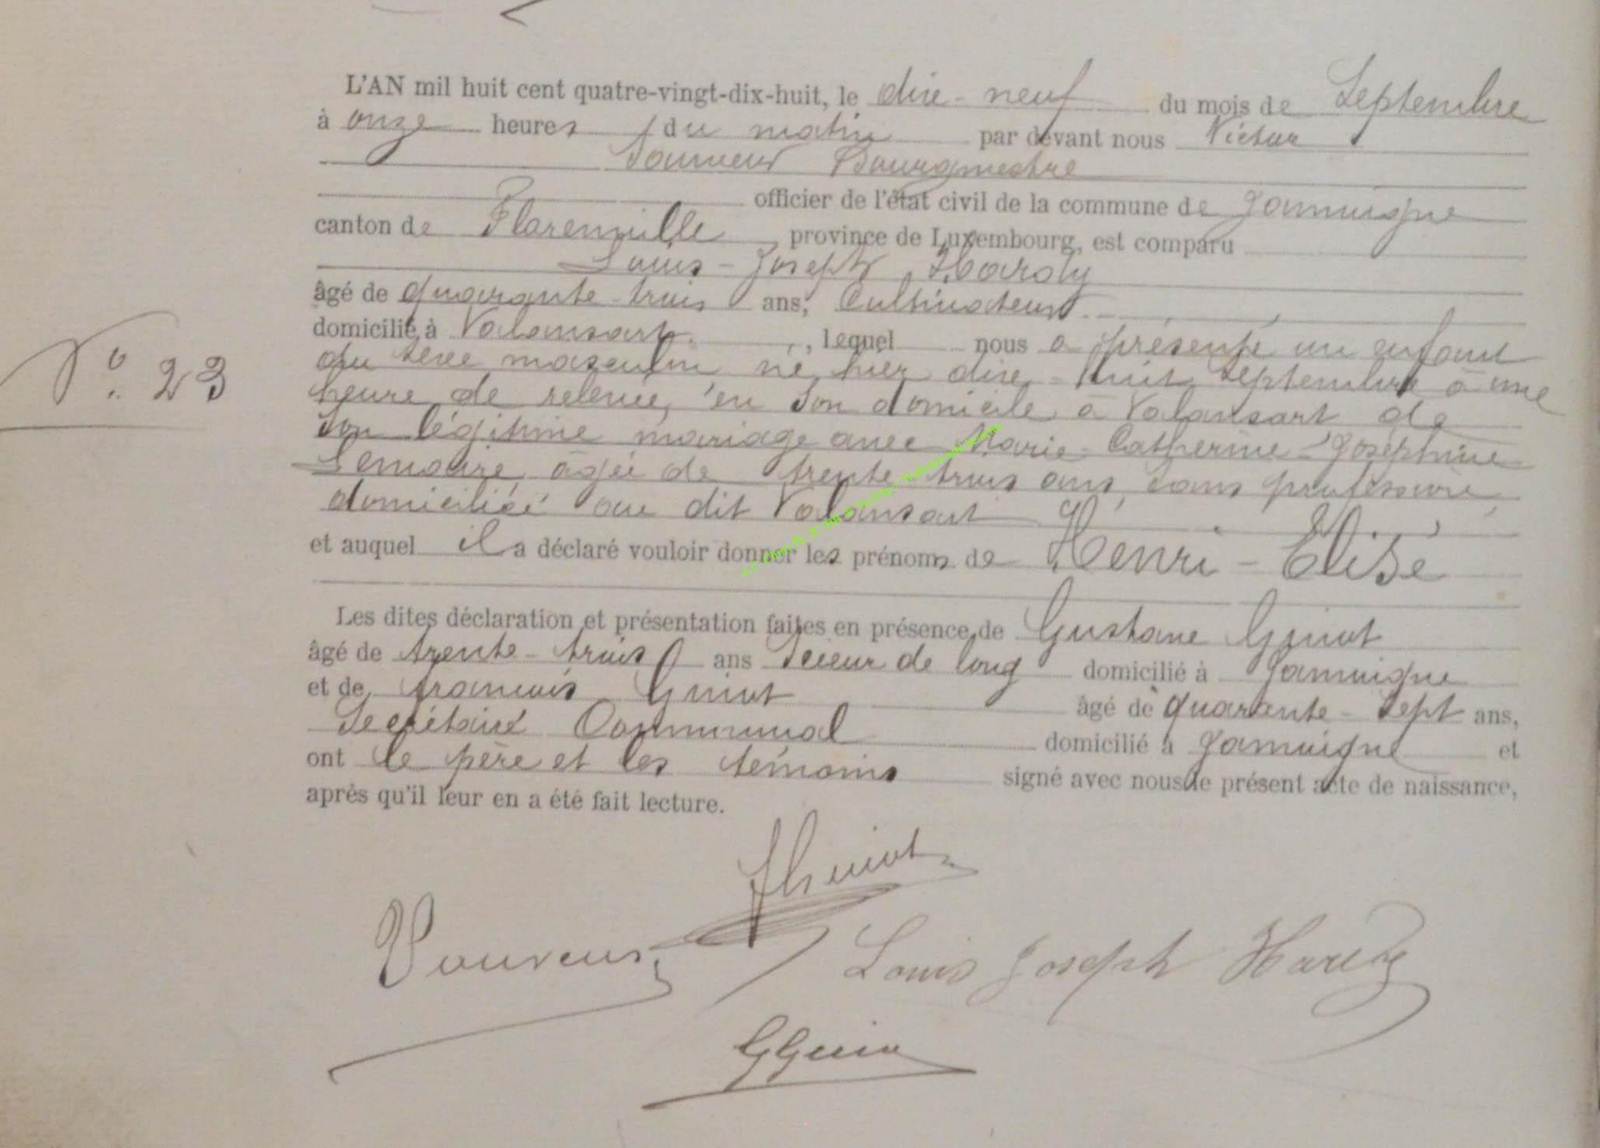 L'AN mil huit cent quatre-vingt-dix-huit, le dixe-neuf du mois de Septembre
à onze heures du matin par devant nous Victor
Bourgmestre
officier de l'état civil de la commune de Jamoigne
canton de Florenville, province de Luxembourg, est comparu
Louis-Joseph Hardy
âgé de quarante-trois ans, Cultivateur
domicilié à Valansart, lequel nous a présenté un enfant
du sexe masculin né hier dixe-huit Septembre à une
heure de relevée, en son domicile à Valansart de
son légitime mariage avec Marie-Catherine-Joséphine
Lemaire, âgée de trente-trois ans, sans profession,
domiciliée au dit Valansart
et auquel il a déclaré vouloir donner les prénoms de Henri-Elisé
N° 23
Les dites déclaration et présentation faites en présence de Gustave Guiot
âgé de trente-trois ans Scieur de long domicilié à Jamoigne
et de François Guiot âgé de quarante-sept ans,
Secrétaire Communal domicilié à Jamoigne et
ont le père et les témoins signé avec nous le présent acte de naissance,
après qu'il leur en a été fait lecture.
Louis Joseph Hardy